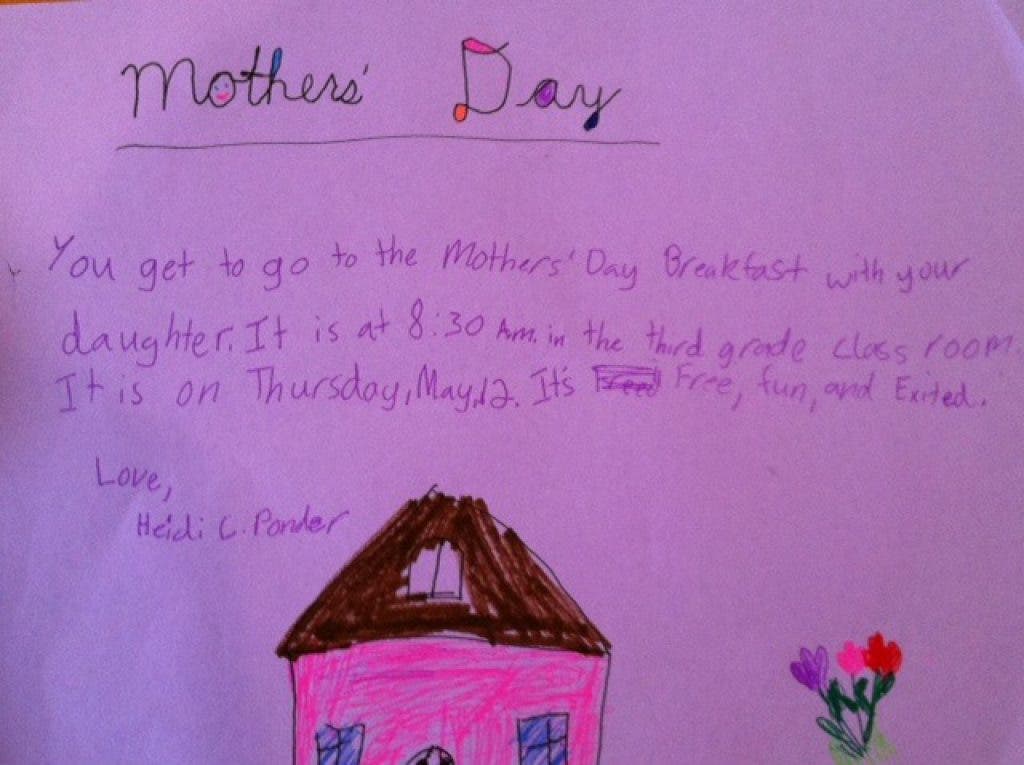 Mothers' Day
You get to go to the Mothers' Day Breakfast with your
daughter. It is at 8:30 Am. in the third grade class room.
It is on Thursday, May, 12. It's Free, fun, and Exited.
Love,
Heidi C. Ponder